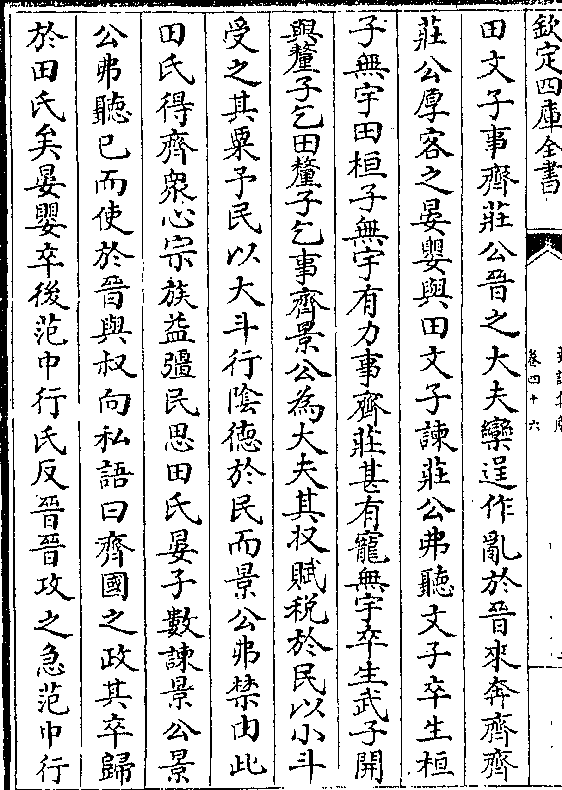 欽定四庫全書
卷四十六
田文子事齊莊公晉之大夫欒逞作亂於晉來奔齊齊
莊公厚客之晏嬰與田文子諫莊公弗聽文子卒生桓
子無宇田桓子無宇有力事齊莊甚有寵無宇卒生武子開
與釐子乞田釐子乞事齊景公為大夫其収賦税於民以小斗
受之其粟予民以大斗行陰德於民而景公弗禁由此
田氏得齊衆心宗族益彊民思田氏晏子數諫景公景
公弗聽已而使於晉與叔向私語曰齊國之政其卒歸
於田氏矣晏嬰卒後范中行氏反晉晉攻之急范中行